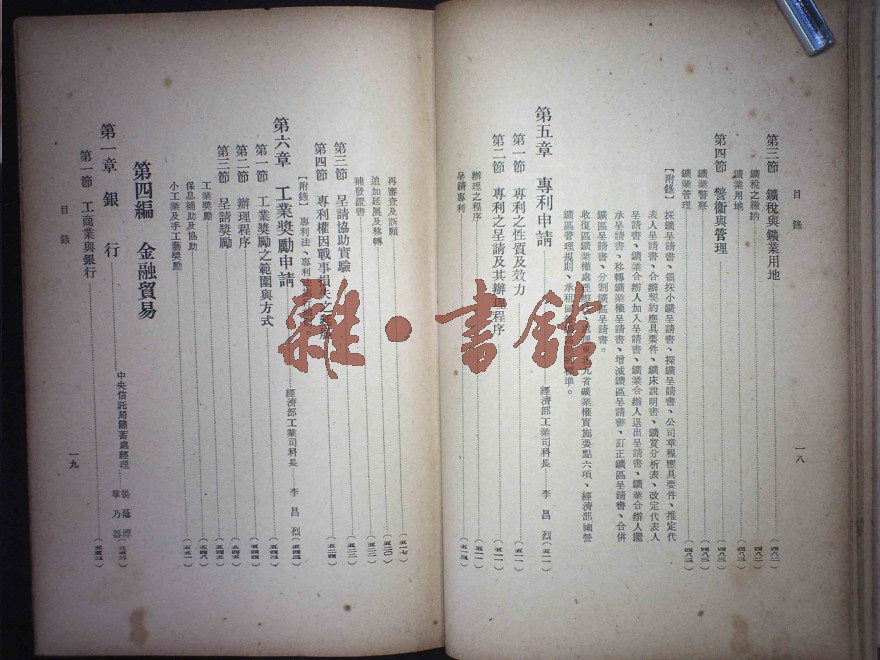 目錄
一八
第三節 鑛稅與鑛業用地(四八二)
鑛稅之繳納(四八二)
鑛業用地(四八三)
第四節 警衞與管理(四八三)
鑛業警察(四八三)
鑛業管理(四八四)
[附錄] 採鑛呈請書、領採小鑛呈請書、探鑛呈請書、公司章程應具要件、推定代
表人呈請書、合辦契約應具要件、鑛床說明書、鑛質分析表、改定代表人
呈請書、鑛業合辦人加入呈請書、鑛業合辦人退出呈請書、鑛業合辦人繼
承呈請書、移轉鑛業權呈請書、增減鑛區呈請書、訂正鑛區呈請書、合併
鑛區呈請書、分割鑛區呈請書。
收復區鑛業權處理辦法、處理東北九省鑛業權實施要點六項、經濟部國營
鑛區管理規則、承租國
第五章 專利申請 經濟部工業司科長 李昌烈(五一一)
第一節 專利之性質及效力(五一一)
第二節 專利之呈請及其辦理程序(五一一)
辦理之程序(五一一)
呈請專利
再審查及訴願(五一七)
追加延展及移轉
補發證書(五二三)
第三節 呈請協助實驗(五二三)
第四節 專利權因戰事損失之延展(五二四)
[附錄] 專利法、專利法
第六章 工業獎勵申請 經濟部工業司科長 李昌烈(五四四)
第一節 工業獎勵之範圍與方式(五四四)
第二節 辦理程序(五四五)
第三節 呈請獎勵
工業獎勵(五四八)
保息補助及協助
小工業及手工藝獎勵(五五一)
第四編 金融貿易
第一章 銀行 中央信託局儲蓄處經理 章乃器
第一節 工商業與銀行
目錄
一九
雜·書館